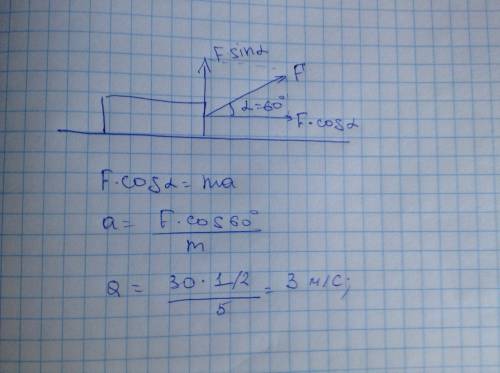 F·sinα
F
α=60°
F·cosα
F·cosα = ma
a = F·cos60° / m
a = 30·1/2 / 5 = 3 м/с;